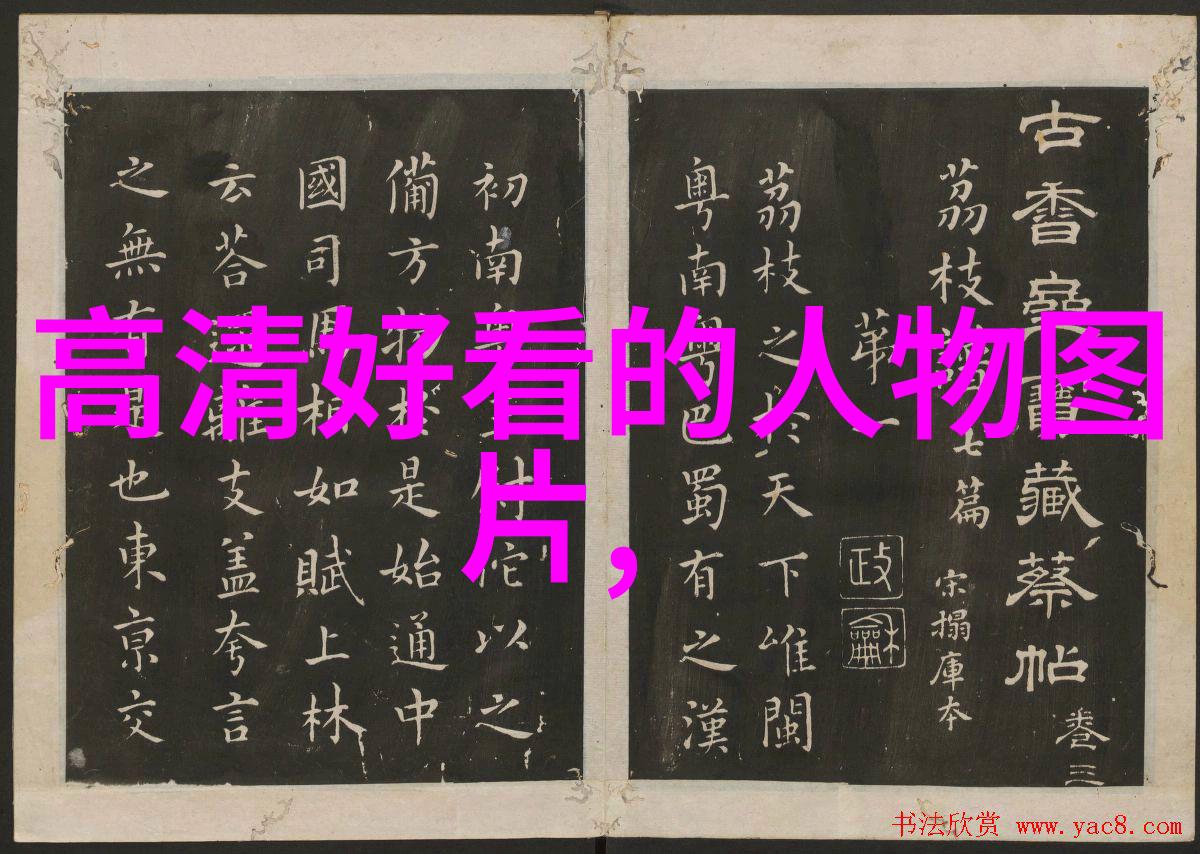 高清好看的人物图
片，
古香齋寶藏蔡帖 卷三
荔枝譜七篇 宋搨庫本
第一
政龢
荔枝之於天下唯閩
粵南粵巴蜀有之漢
初南粵王尉佗以之
備方物於是始通中
國司馬相如賦上林
云荅遝離支盖夸言
之無有是也東京交
书法欣赏 www.yac8.com